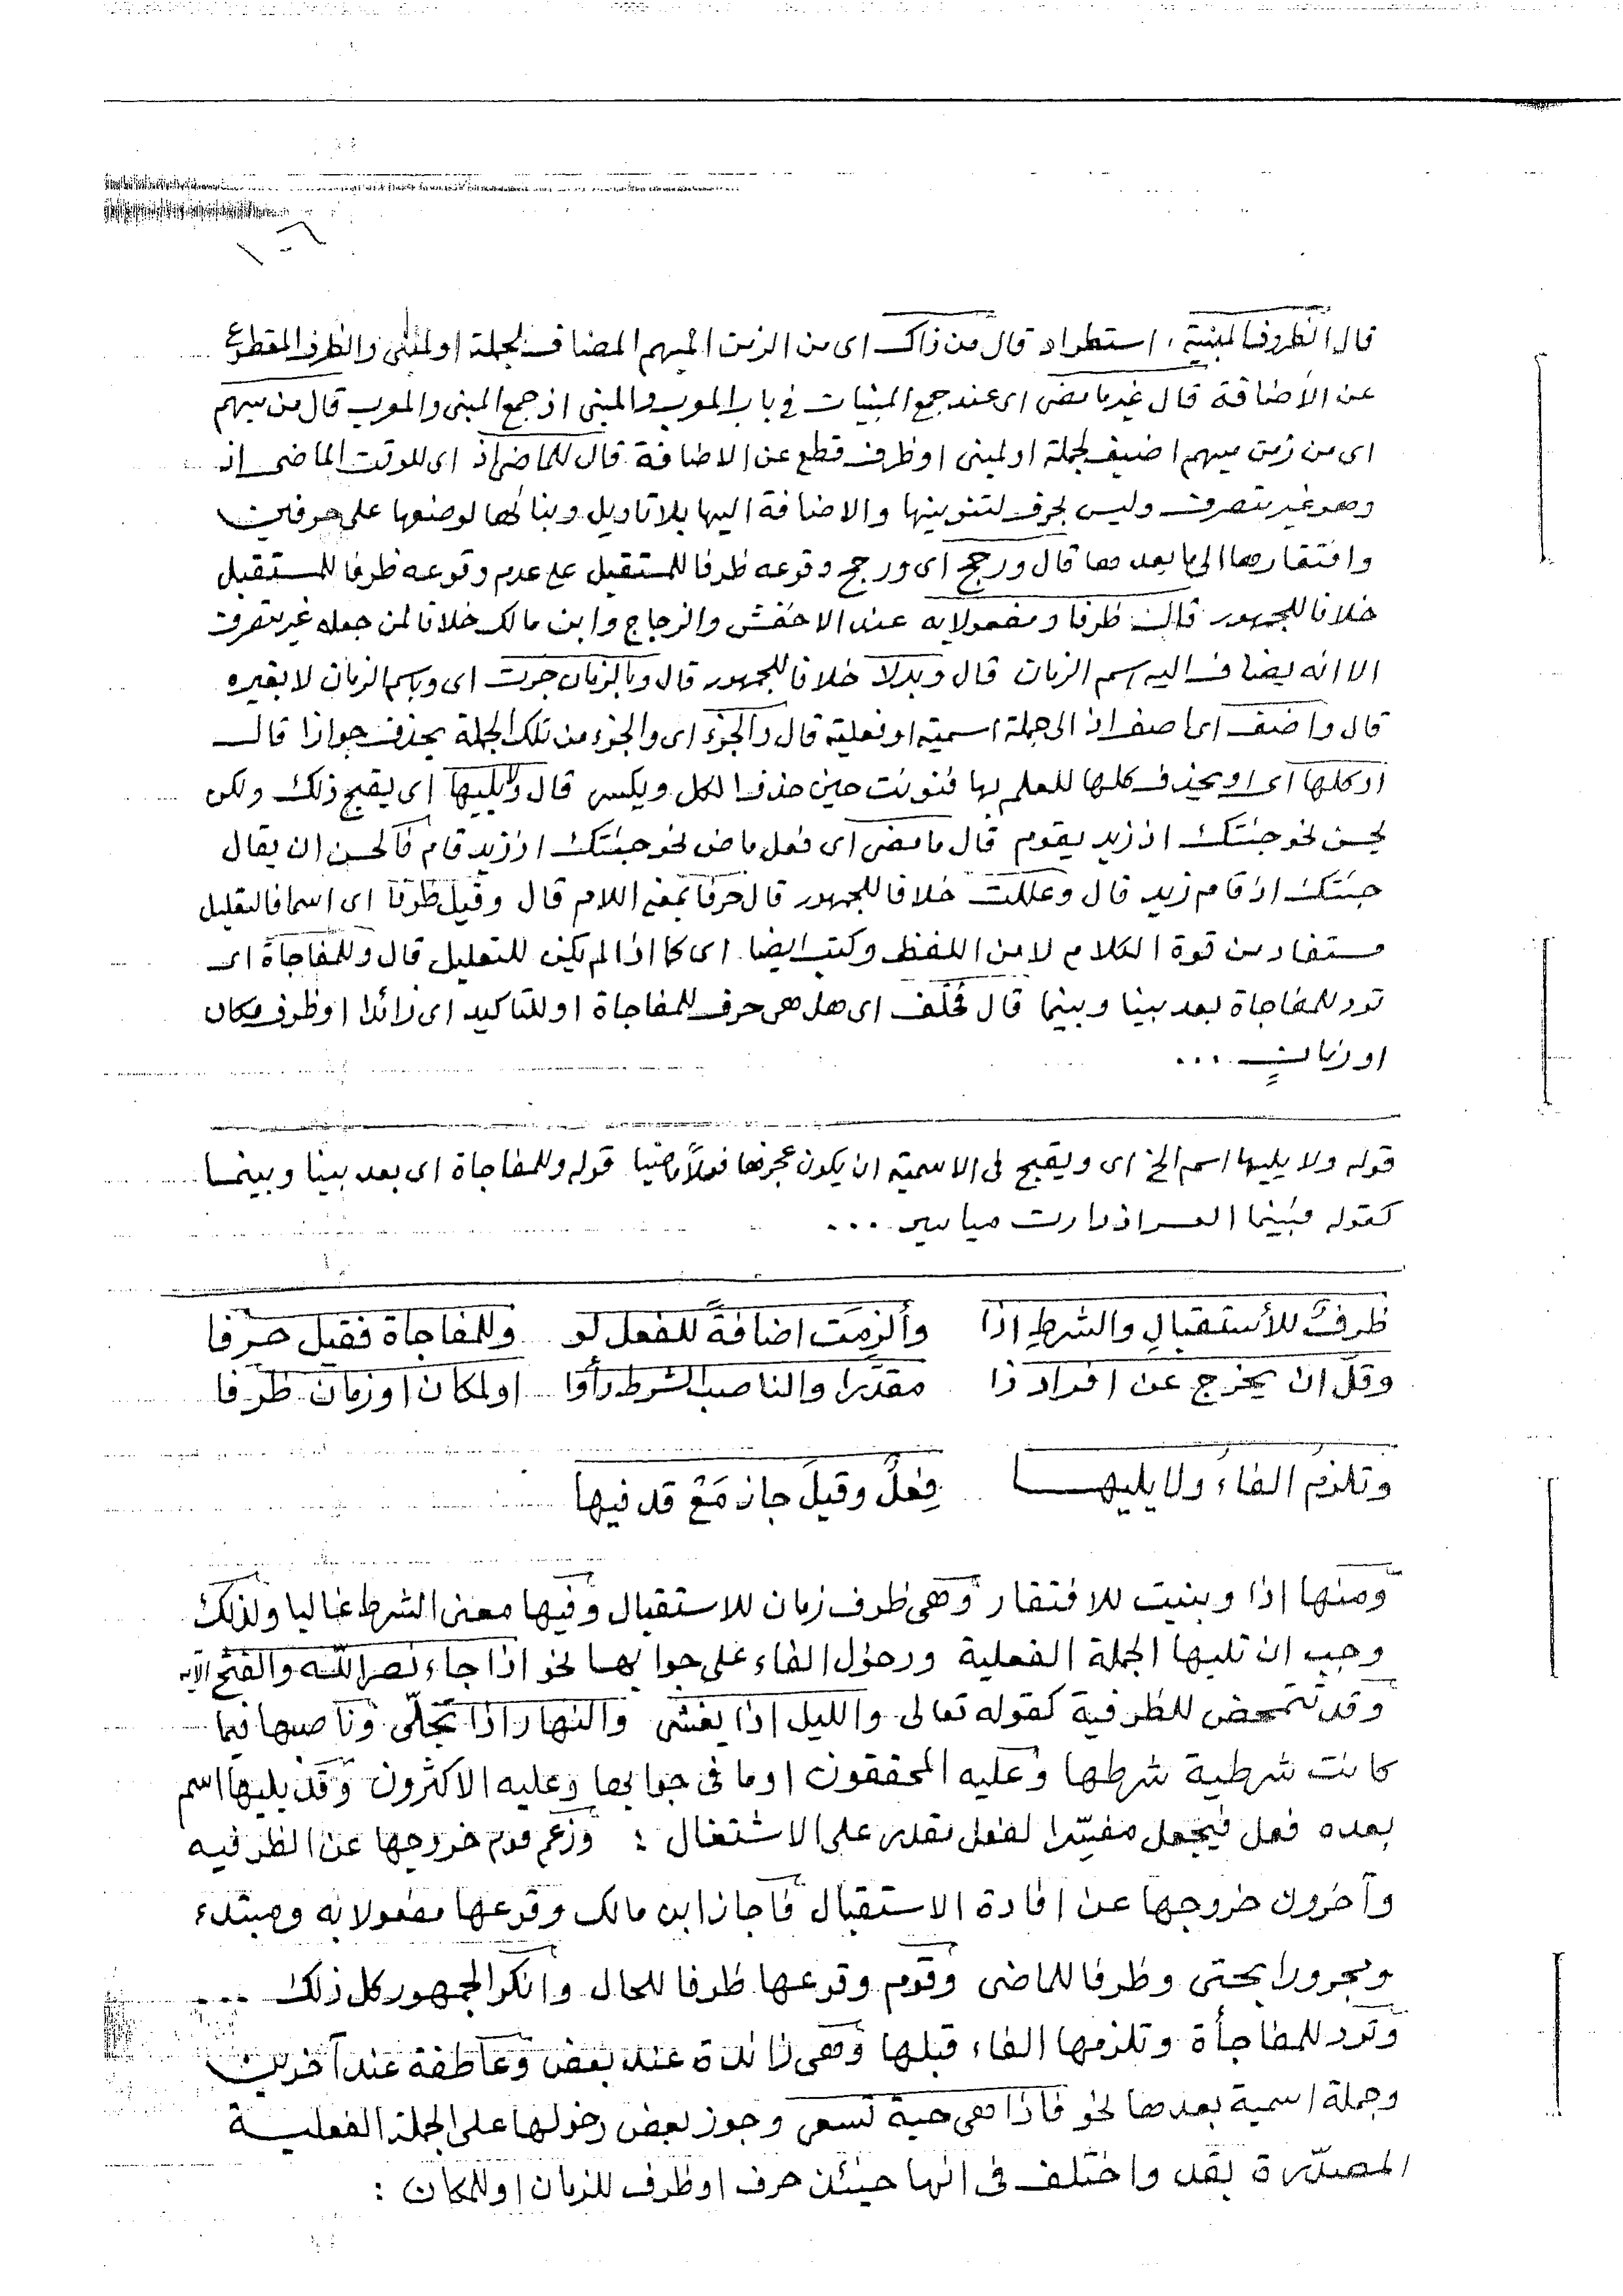 ١٠٦
قال الظروف المبنية، استطراد قال من ذاك اى من الزمن المبهم المضاف لجملة او لمبنى والظرف المقطوع
عن الأضافة قال غير ما مضى اى عند جمع المبنيات فى باب المعرب والمبنى اذ جمع المبنى والمعرب قال من مبهم
اى من زمن مبهم اضيف لجملة او لمبنى او ظرف قطع عن الاضافة قال للماضى اذ اى للوقت الماضى اذ
وهو غير متصرف وليس بحرف لتنوينها والاضافة اليها بلا تاويل وبنائها لوضعها على حرفين
وافتقارها الى ما بعدها قال ورجح اى ورجح وقوعه ظرفا للمستقبل على عدم وقوعه ظرفا للمستقبل
خلافا للجمهور قال ظرفا ومفعولا به عند الاخفش والزجاج وابن مالك خلافا لمن جعله غير متصرف
الا انه يضاف اليه اسم الزمان قال وبدلا خلافا للجمهور قال وبالزمان جرت اى وباسم الزمان لا بغيره
قال واضف اى اضف اذ الى جملة اسمية او فعلية قال والجزء اى والجزء من تلك الجملة يحذف جوازا قال
او كلها اى او يحذف كلها للعلم بها فنونت حين حذف الكل ويكسر قال ولا يليها اى يقبح ذلك ولكن
يحسن نحو جئتك اذ زيد يقوم قال ما مضى اى فعل ماض نحو جئتك اذ زيد قام فالحسن ان يقال
جئتك اذ قام زيد قال وعللت خلافا للجمهور قال حرفا بمعنى اللام قال وقيل ظرفا اى اسما فالتعليل
مستفاد من قوة الكلام لا من اللفظ وكتب ايضا اى كما اذا لم يكن للتعليل قال وللمفاجاة اى
ترد للمفاجاة بعد بينا وبينما قال مختلف اى هل هى حرف للمفاجاة او للتاكيد اى زائدا او ظرف مكان
او زمانٍ ...
قوله ولا يليها اسم الخ اى ويقبح فى الاسمية ان يكون عجزها فعلاً ماضيا قوله وللمفاجاة اى بعد بينا وبينما
كقوله فبينما العسر اذ دارت مياسير ...
ظرفٌ للأستقبالِ والشرطِ اذا وألزِمَت اضافةً للفعل لو وللمفاجاة فقيل حرفا
وقلّ ان يخرج عن افراد ذا مقدَّرا والناصب الشرط رأوا او لمكان او زمان ظرفا
وتلزمُ الفاءُ ولا يليهـا فِعلٌ وقيلَ جاز مَعْ قد فيها
ومنها اذا وبنيت للافتقار وهى ظرف زمان للاستقبال وفيها معنى الشرط غالبا ولذلك
وجب ان تليها الجملة الفعلية ودخول الفاء على جوابها نحو اذا جاء نصر اللّه والفتح الآيه
وقد تتمحض للظرفية كقوله تعالى والليل اذا يغشى والنهار اذا تجلّى وناصبها فيما
كانت شرطية شرطها وعليه المحققون او ما فى جوابها وعليه الاكثرون وقد يليها اسم
بعده فعل فيجعل مفسِّرا لفعل مقدر على الاشتغال : وزعم قوم خروجها عن الظرفيه
وآخرون خروجها عن افادة الاستقبال فاجاز ابن مالك وقوعها مفعولا به ومبتدء
ومجرورا بحتى وظرفا للماضى وقوم وقوعها ظرفا للحال وانكر الجمهور كل ذلك ...
وترد للمفاجأة وتلزمها الفاء قبلها وهى زائدة عند بعض وعاطفة عند آخرين
وجملة اسمية بعدها نحو فاذا هى حية تسعى وجوز بعض دخولها على الجملة الفعلية
المصدّرة بقد واختلف فى انها حينئذ حرف او ظرف للزمان او للمكان :